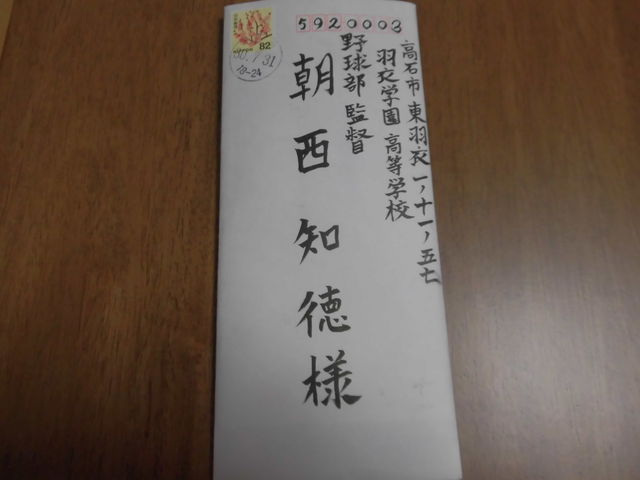 5920003
高石市東羽衣一ノ十一ノ五七
羽衣学園高等学校
野球部監督
朝西知徳様
82
30.1.31
18-24